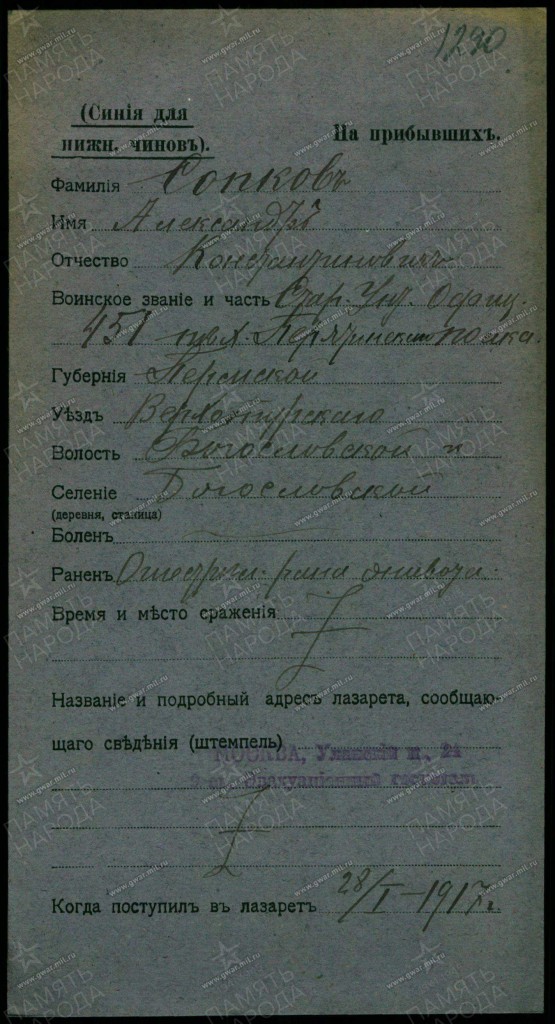 1290
(Синія для
нижн. чиновъ).
На прибывшихъ.
Фамилія Сопковъ
Имя Александръ
Отчество Константиновичъ
Воинское званіе и часть Стар. Унт. Офиц.
451 пѣх. полка.
Губернія Пермской
Уѣздъ Верхотурскаго
Волость Богословской
Селеніе Богословской
(деревня, станица)
Боленъ
Раненъ рана живота.
Время и мѣсто сраженія
Названіе и подробный адресъ лазарета, сообщаю-
щаго свѣдѣнія (штемпель)
МОСКВА, 24
Эвакуаціонный госпиталь
Когда поступилъ въ лазаретъ 28/I–1917г.
ПАМЯТЬ НАРОДА
www.gwar.mil.ru